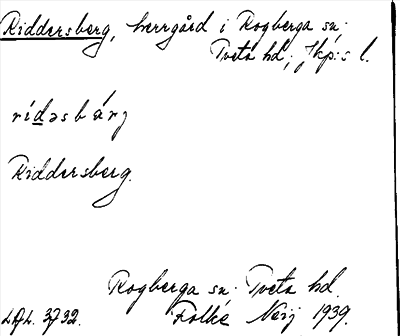 Riddersberg, herrgård i Rogberga sn.
Tveta hd; Jkp:s l.
rídəsbárj
Riddersberg.
Rogberga sn. Tveta hd.
Folke Neij 1939.